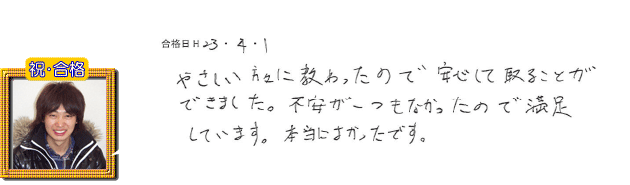 合格日 H 23・4・1
祝・合格
やさしい方々に教わったので安心して取ることが
できました。不安が一つもなかったので満足
しています。本当によかったです。